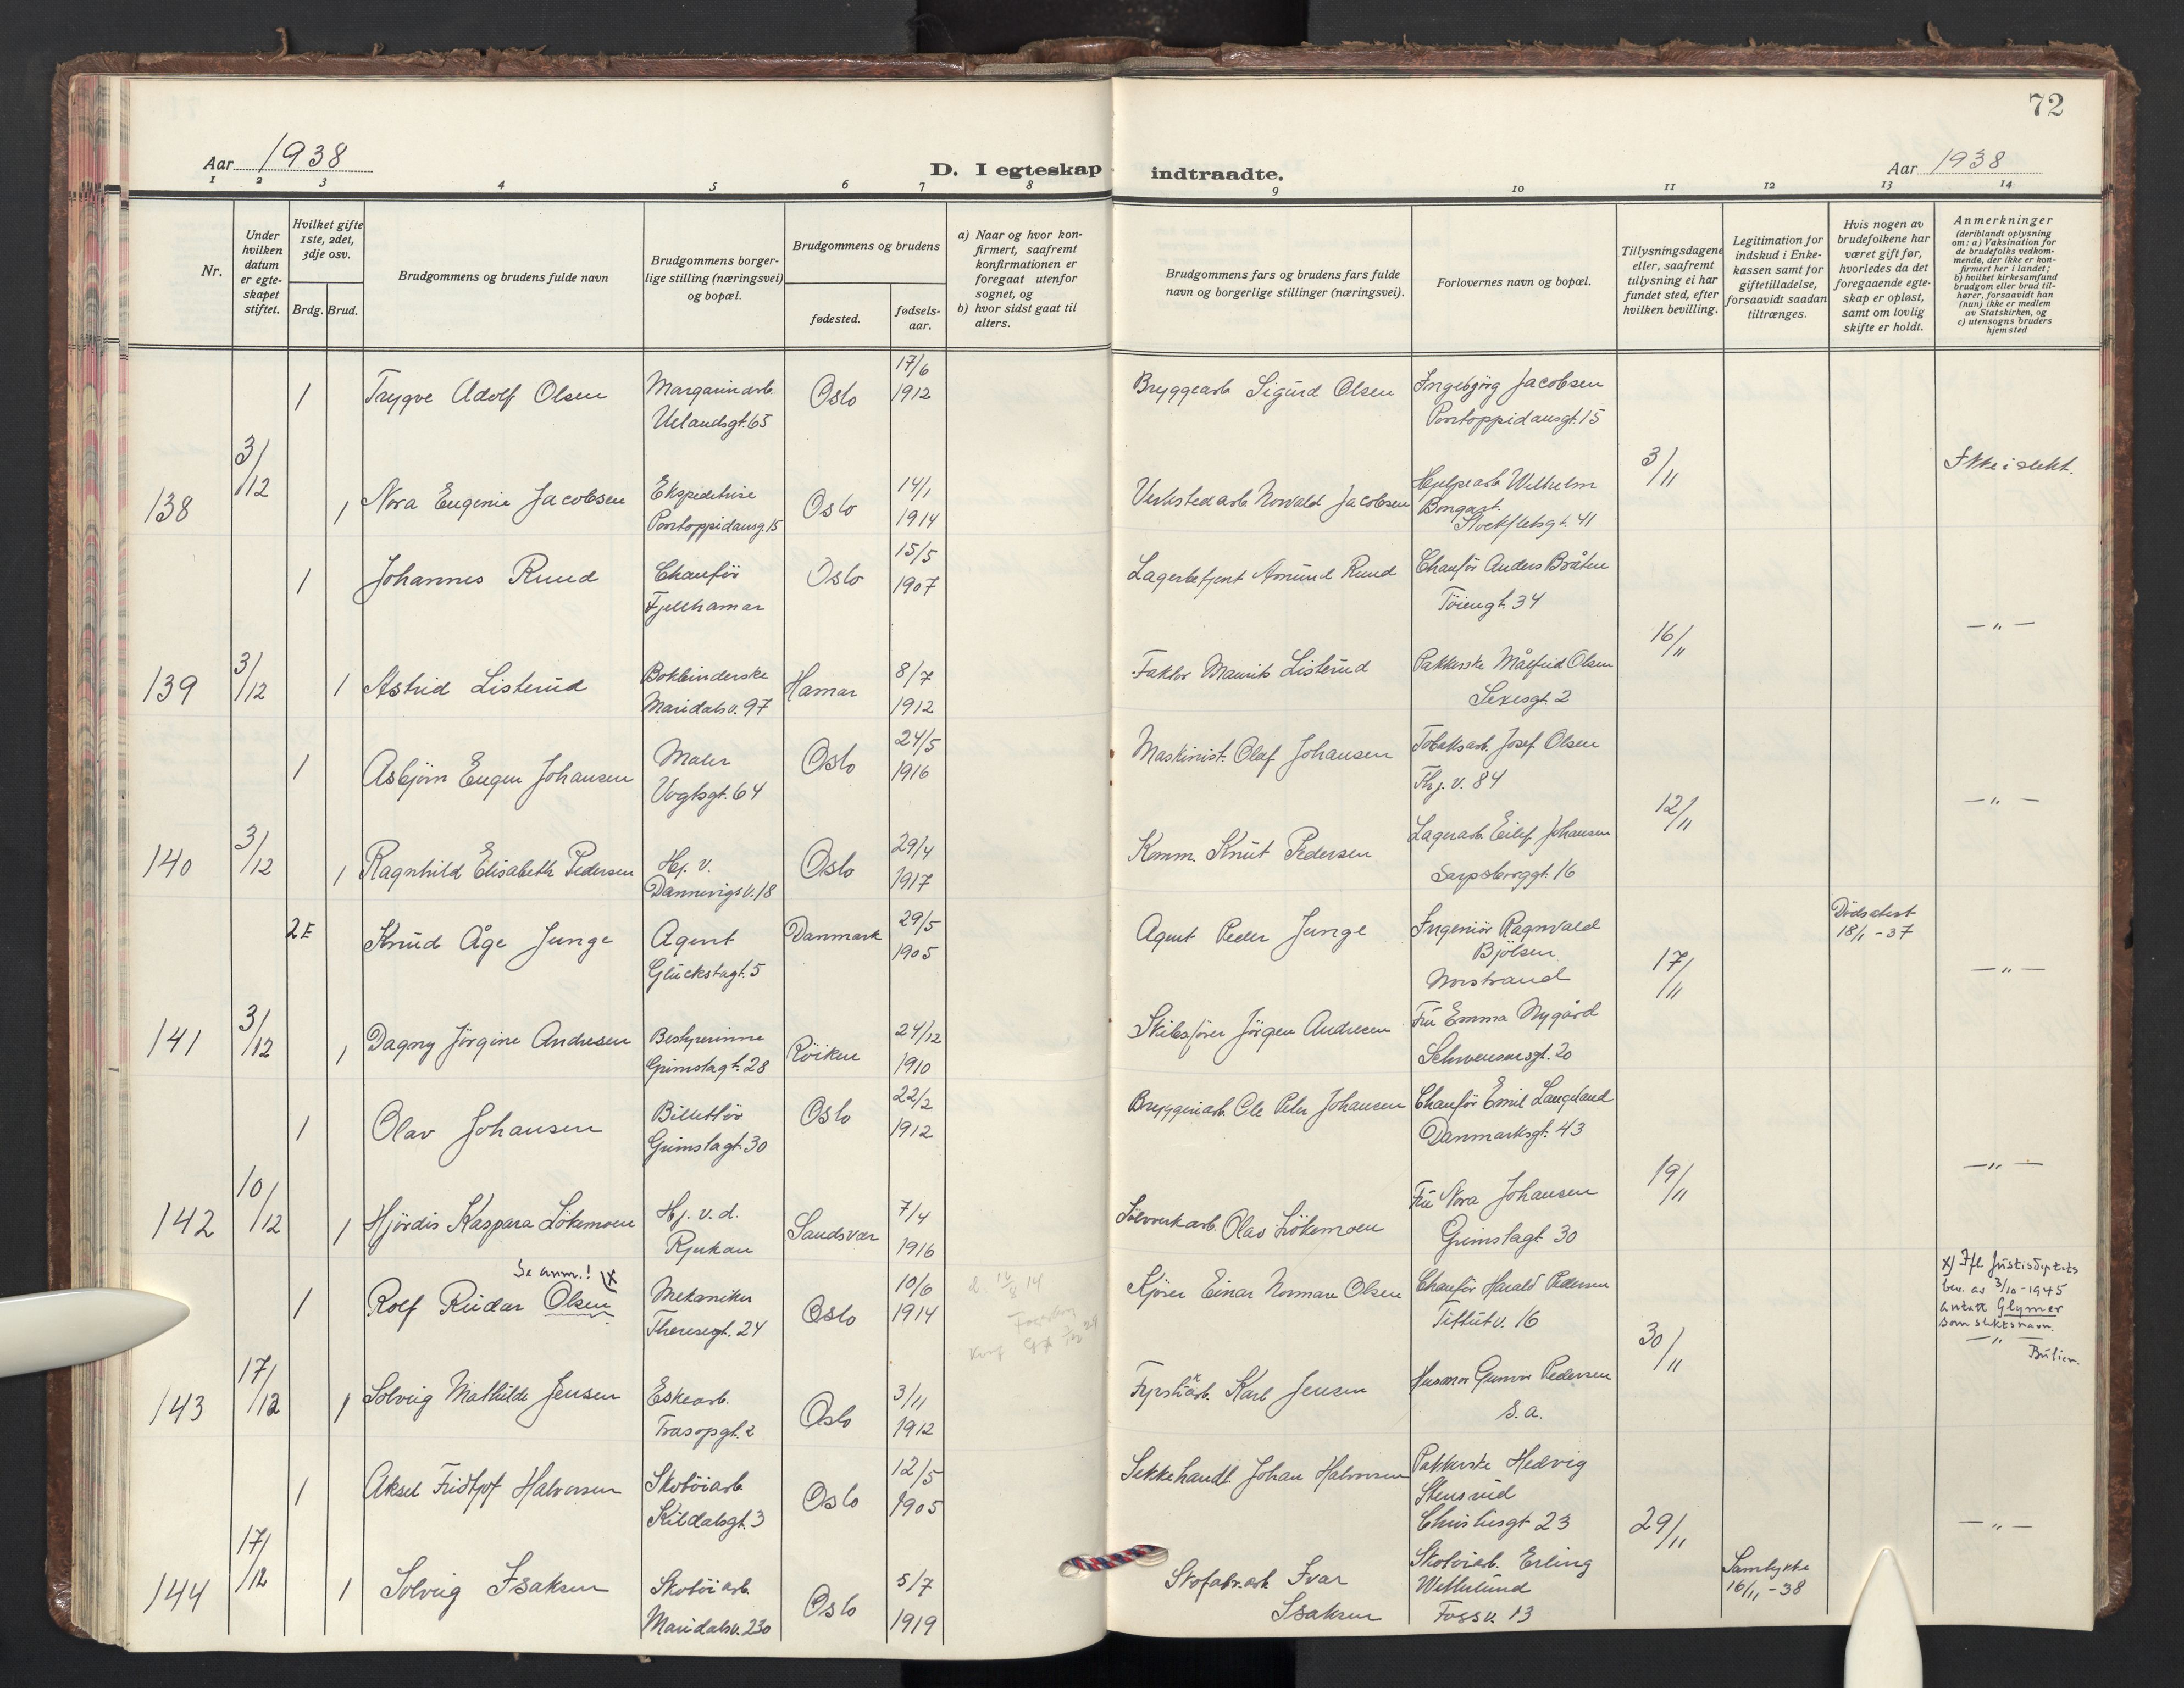 72
Aar 1938
D. I egteskap indtraadte.
Aar 1938
1 2 3 4 5 6 7 8 9 10 11 12 13 14
Nr.
Under hvilken datum er egteskapet stiftet.
Hvilket gifte 1ste, 2det, 3dje osv.
Brdg. Brud.
Brudgommens og brudens fulde navn
Brudgommens borgerlige stilling (næringsvei) og bopæl.
Brudgommens og brudens
fødested.
fødselsaar.
a) Naar og hvor konfirmert, saafremt konfirmationen er foregaat utenfor sognet, og
b) hvor sidst gaat til alters.
Brudgommens fars og brudens fars fulde navn og borgerlige stillinger (næringsvei).
Forlovernes navn og bopæl.
Tillysningsdagene eller, saafremt tillysning ei har fundet sted, efter hvilken bevilling.
Legitimation for indskud i Enkekassen samt for giftetilladelse, forsaavidt saadan tiltrænges.
Hvis nogen av brudefolkene har været gift før, hvorledes da det foregaaende egteskap er opløst, samt om lovlig skifte er holdt.
Anmerkninger (deriblandt oplysning om: a) Vaksination for de brudefolks vedkommende, der ikke er konfirmert her i landet; b) hvilket kirkesamfund brudgom eller brud tilhører, forsaavidt han (hun) ikke er medlem av Statskirken, og c) utensogns bruders hjemsted
1 Trygve Adolf Olsen Margarinarb. Uelandsgt. 65 Oslo 17/6 1912 Bryggearb Sigurd Olsen Ingebjørg Jacobsen Pontoppidansgt. 15
138 3/12 1 Nora Eugenie Jacobsen Ekspeditrise Pontoppidansg. 15 Oslo 14/1 1914 Verkstedarb Norvald Jacobsen Hjelpearb Wilhelm Bongart. Stockfletsgt. 41 3/11 Ikke i slekt.
1 Johannes Ruud Chaufør Fjellhamar Oslo 15/5 1907 Lagerbetjent Amund Ruud Chaufør Anders Bråten Töiengt. 34
139 3/12 1 Astrid Listerud Bokbinderske Maridalsv. 97 Hamar 8/7 1912 Faktor Maurits Listerud Pakkerske Målfrid Olsen Sexesgt. 2 16/11 — " —
1 Asbjörn Eugen Johansen Maler Vogtsgt. 64 Oslo 24/5 1916 Maskinist. Olaf Johansen Tobaksarb. Josef Olsen Thj. v. 84
140 3/12 1 Ragnhild Elisabeth Pedersen Hj. v. Dannevigsv. 18 Oslo 29/4 1917 Komm. Knut Pedersen Lagerarb. Eilef Johansen Sarpsborggt. 16 12/11 — " —
2 E Knud Åge Junge Agent Glückstagt. 5 Danmark 29/5 1905 Agent Peder Junge Ingeniör Ragnvald Bjölsen Norstrand Dödsatest 18/1 - 37
141 3/12 1 Dagny Jörgine Andresen Bestyrerinne Grimstagt. 28 Röiken 24/12 1910 Skibsförer Jörgen Andresen Fru Emma Nygård Schwensensgt. 20 17/11 — " —
1 Olav Johansen Billettör Grimstagt. 30 Oslo 22/2 1912 Bryggeriarb. Ole Peter Johansen Chaufför Emil Langeland Danmarksgt. 43
142 10/12 1 Hjördis Kaspara Lökemoen Hj. v. d. Rjukan Sandsvær 7/4 1916 Sölvverkarb. Olav Lökemoen Fru Nora Johansen Grimstagt 30 19/11 — " —
Se anm.! x
1 Rolf Rudar Olsen Mekaniker Theresegt. 24 Oslo 10/6 1914 Kjörer Einar Normann Olsen Chaufför Harald Pedersen Tittutv. 16
x) Ifl Justisdeptets bev. av 3/10-1945 antatt Glymer som slektsnavn.
143 17/12 1 Solveig Mathilde Jensen Eskearb. Trasopgt. 2 Oslo 3/11 1912 Fyrstikarb. Karl Jensen Husmor Gunvor Pedersen s. a. 30/11 — " —
1 Aksel Fridtjof Halvorsen Skotöiarb Kildalsgt. 3 Oslo 12/5 1905 Sekkehandl. Johan Halvorsen Pakkerske Hedvig Stensrud Christiesgt 23
144 17/12 1 Solveig Isaksen Skotöiarb Maridalsv. 230 Oslo 5/7 1919 Skofabr.arb Ivar Isaksen Skotöiarb. Erling Wetterlund Fossv. 13 29/11 Samtykke 16/11 - 38 — " —